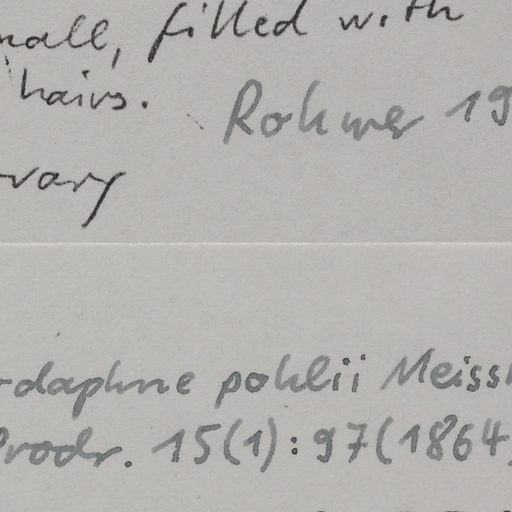 mall, filled with
hairs.
Rohwer 19
ovary
-daphne pohlii Meissn
Prodr. 15(1):97(1864)